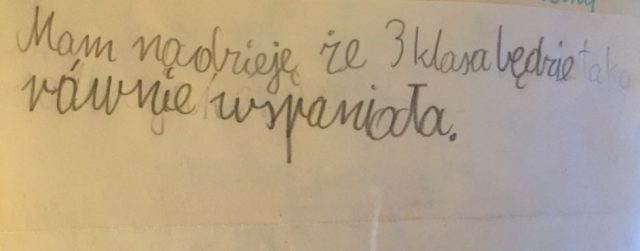 Mam nadzieję że 3 klasa będzie taka
równie wspaniała.